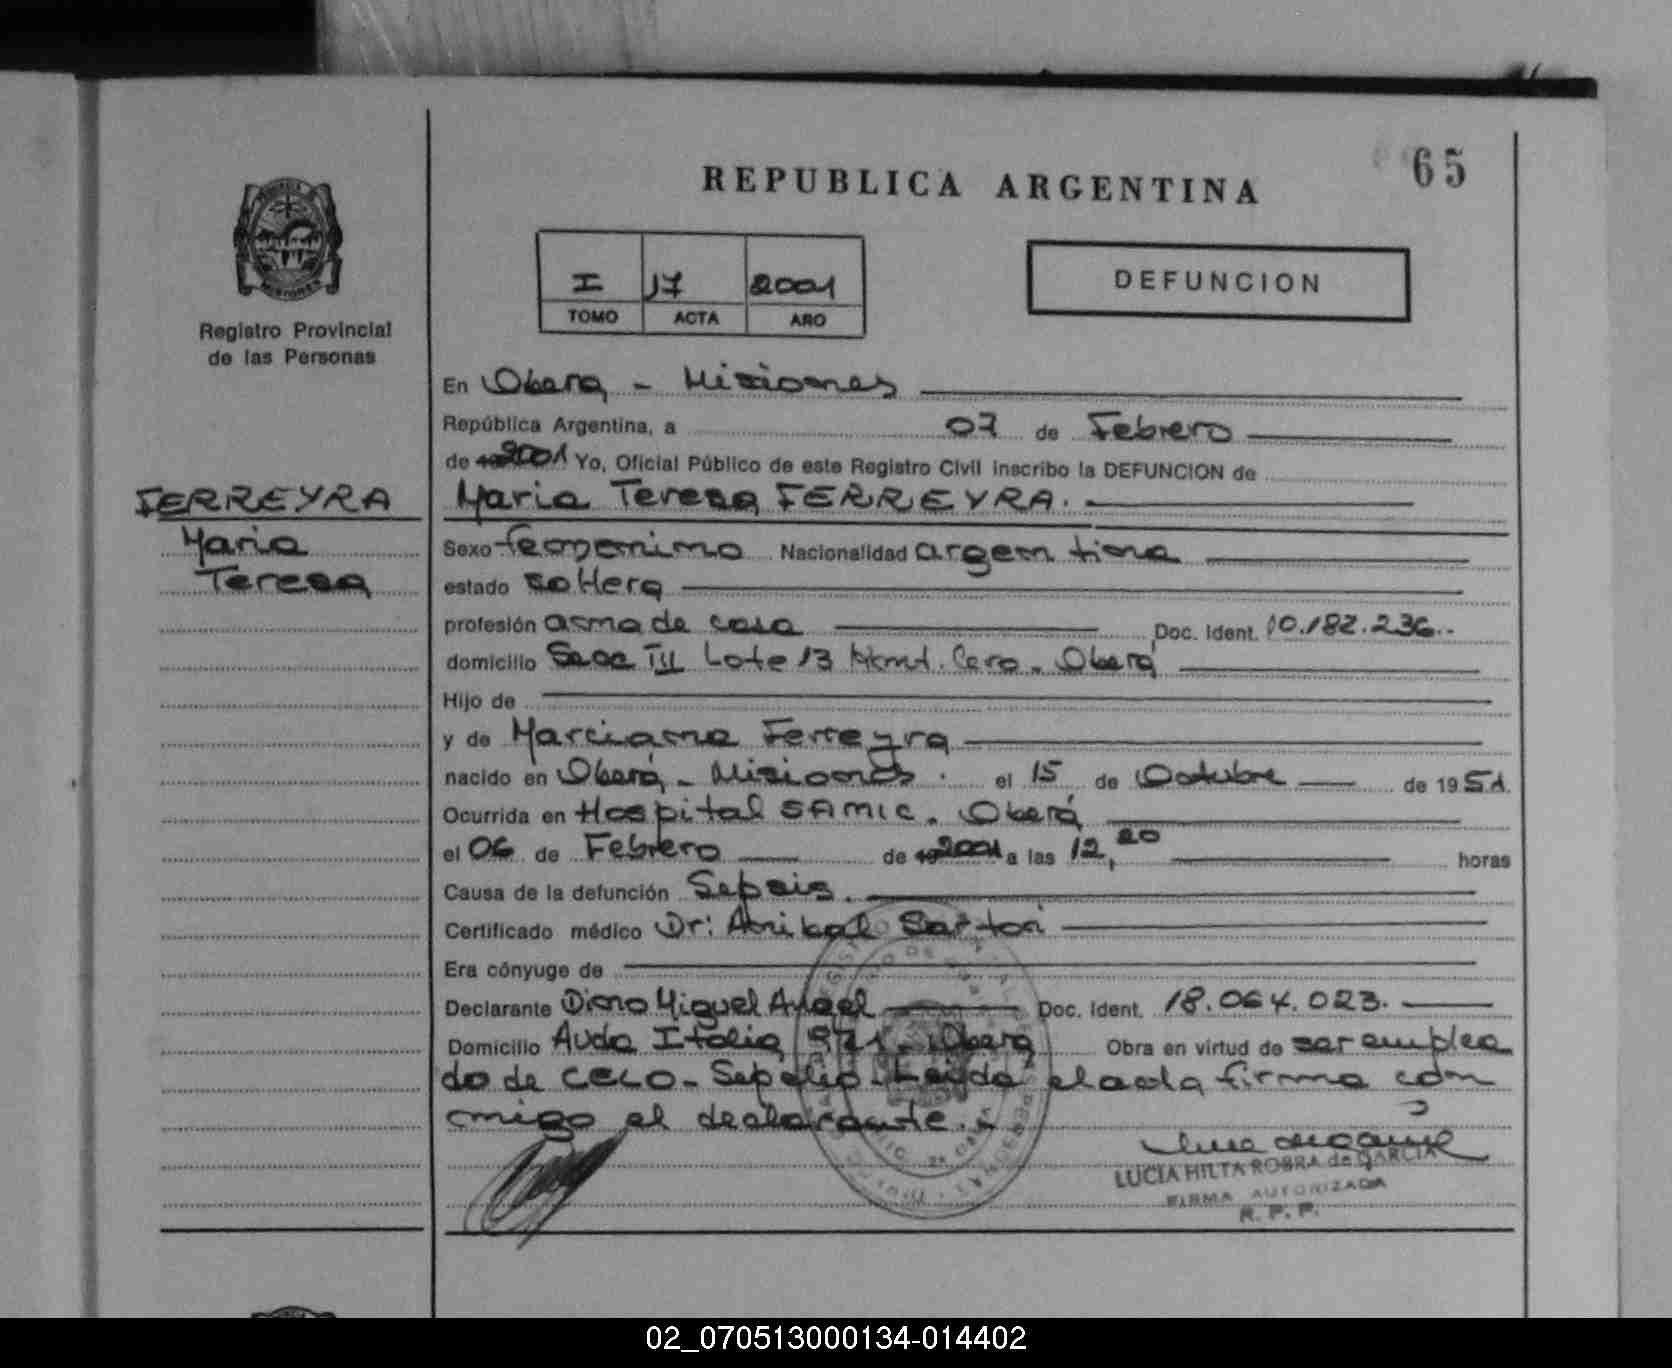 65
REPUBLICA ARGENTINA
I 17 2001
TOMO ACTA AÑO
DEFUNCION
MISIONES
Registro Provincial
de las Personas
FERREYRA
Maria
Teresa
En Oberá - Misiones
República Argentina, a 07 de Febrero
de 19 2001 Yo, Oficial Público de este Registro Civil inscribo la DEFUNCION de
Maria Teresa FERREYRA.
Sexo femenino Nacionalidad argentina
estado soltera
profesión ama de casa Doc. Ident. 10.182.236.
domicilio Secc III Lote 13 Oberá
Hijo de
y de Marciana Ferreyra
nacido en Oberá - Misiones. el 15 de Octubre de 1951.
Ocurrida en Hospital SAMIC. Oberá
el 06 de Febrero de 19 2001 a las 12,20 horas
Causa de la defunción Sepsis.
Certificado médico Dr: Anibal Sartori
Era cónyuge de
Declarante Miguel Angel Doc. Ident. 18.064.023.
Domicilio Avda Italia Oberá Obra en virtud de ser emplea
do de CELO - Sepelio. Leida el acta firma con
migo el declarante.
LUCIA HILTA ROBRA de GARCIA
FIRMA AUTORIZADA
R. P. P.
02_070513000134-014402